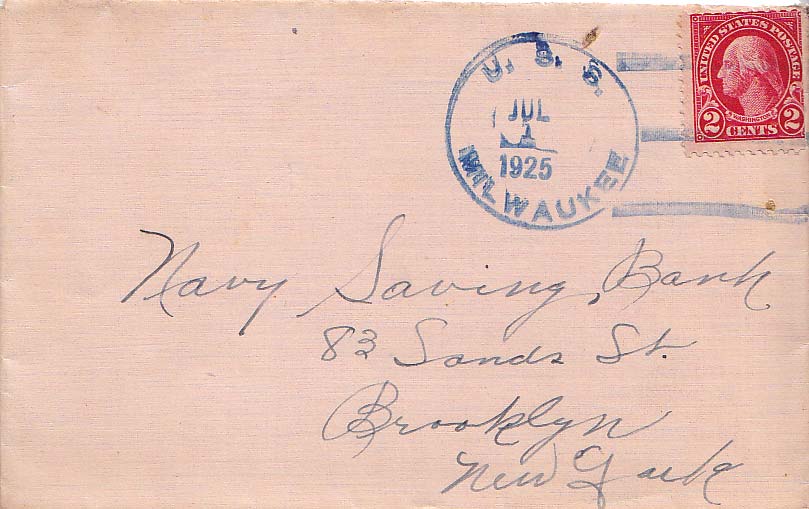 U. S. S.
JUL
1
1925
MILWAUKEE
UNITED STATES POSTAGE
WASHINGTON
2 CENTS 2
Navy Saving, Bank
83 Sands St.
Brooklyn
New York